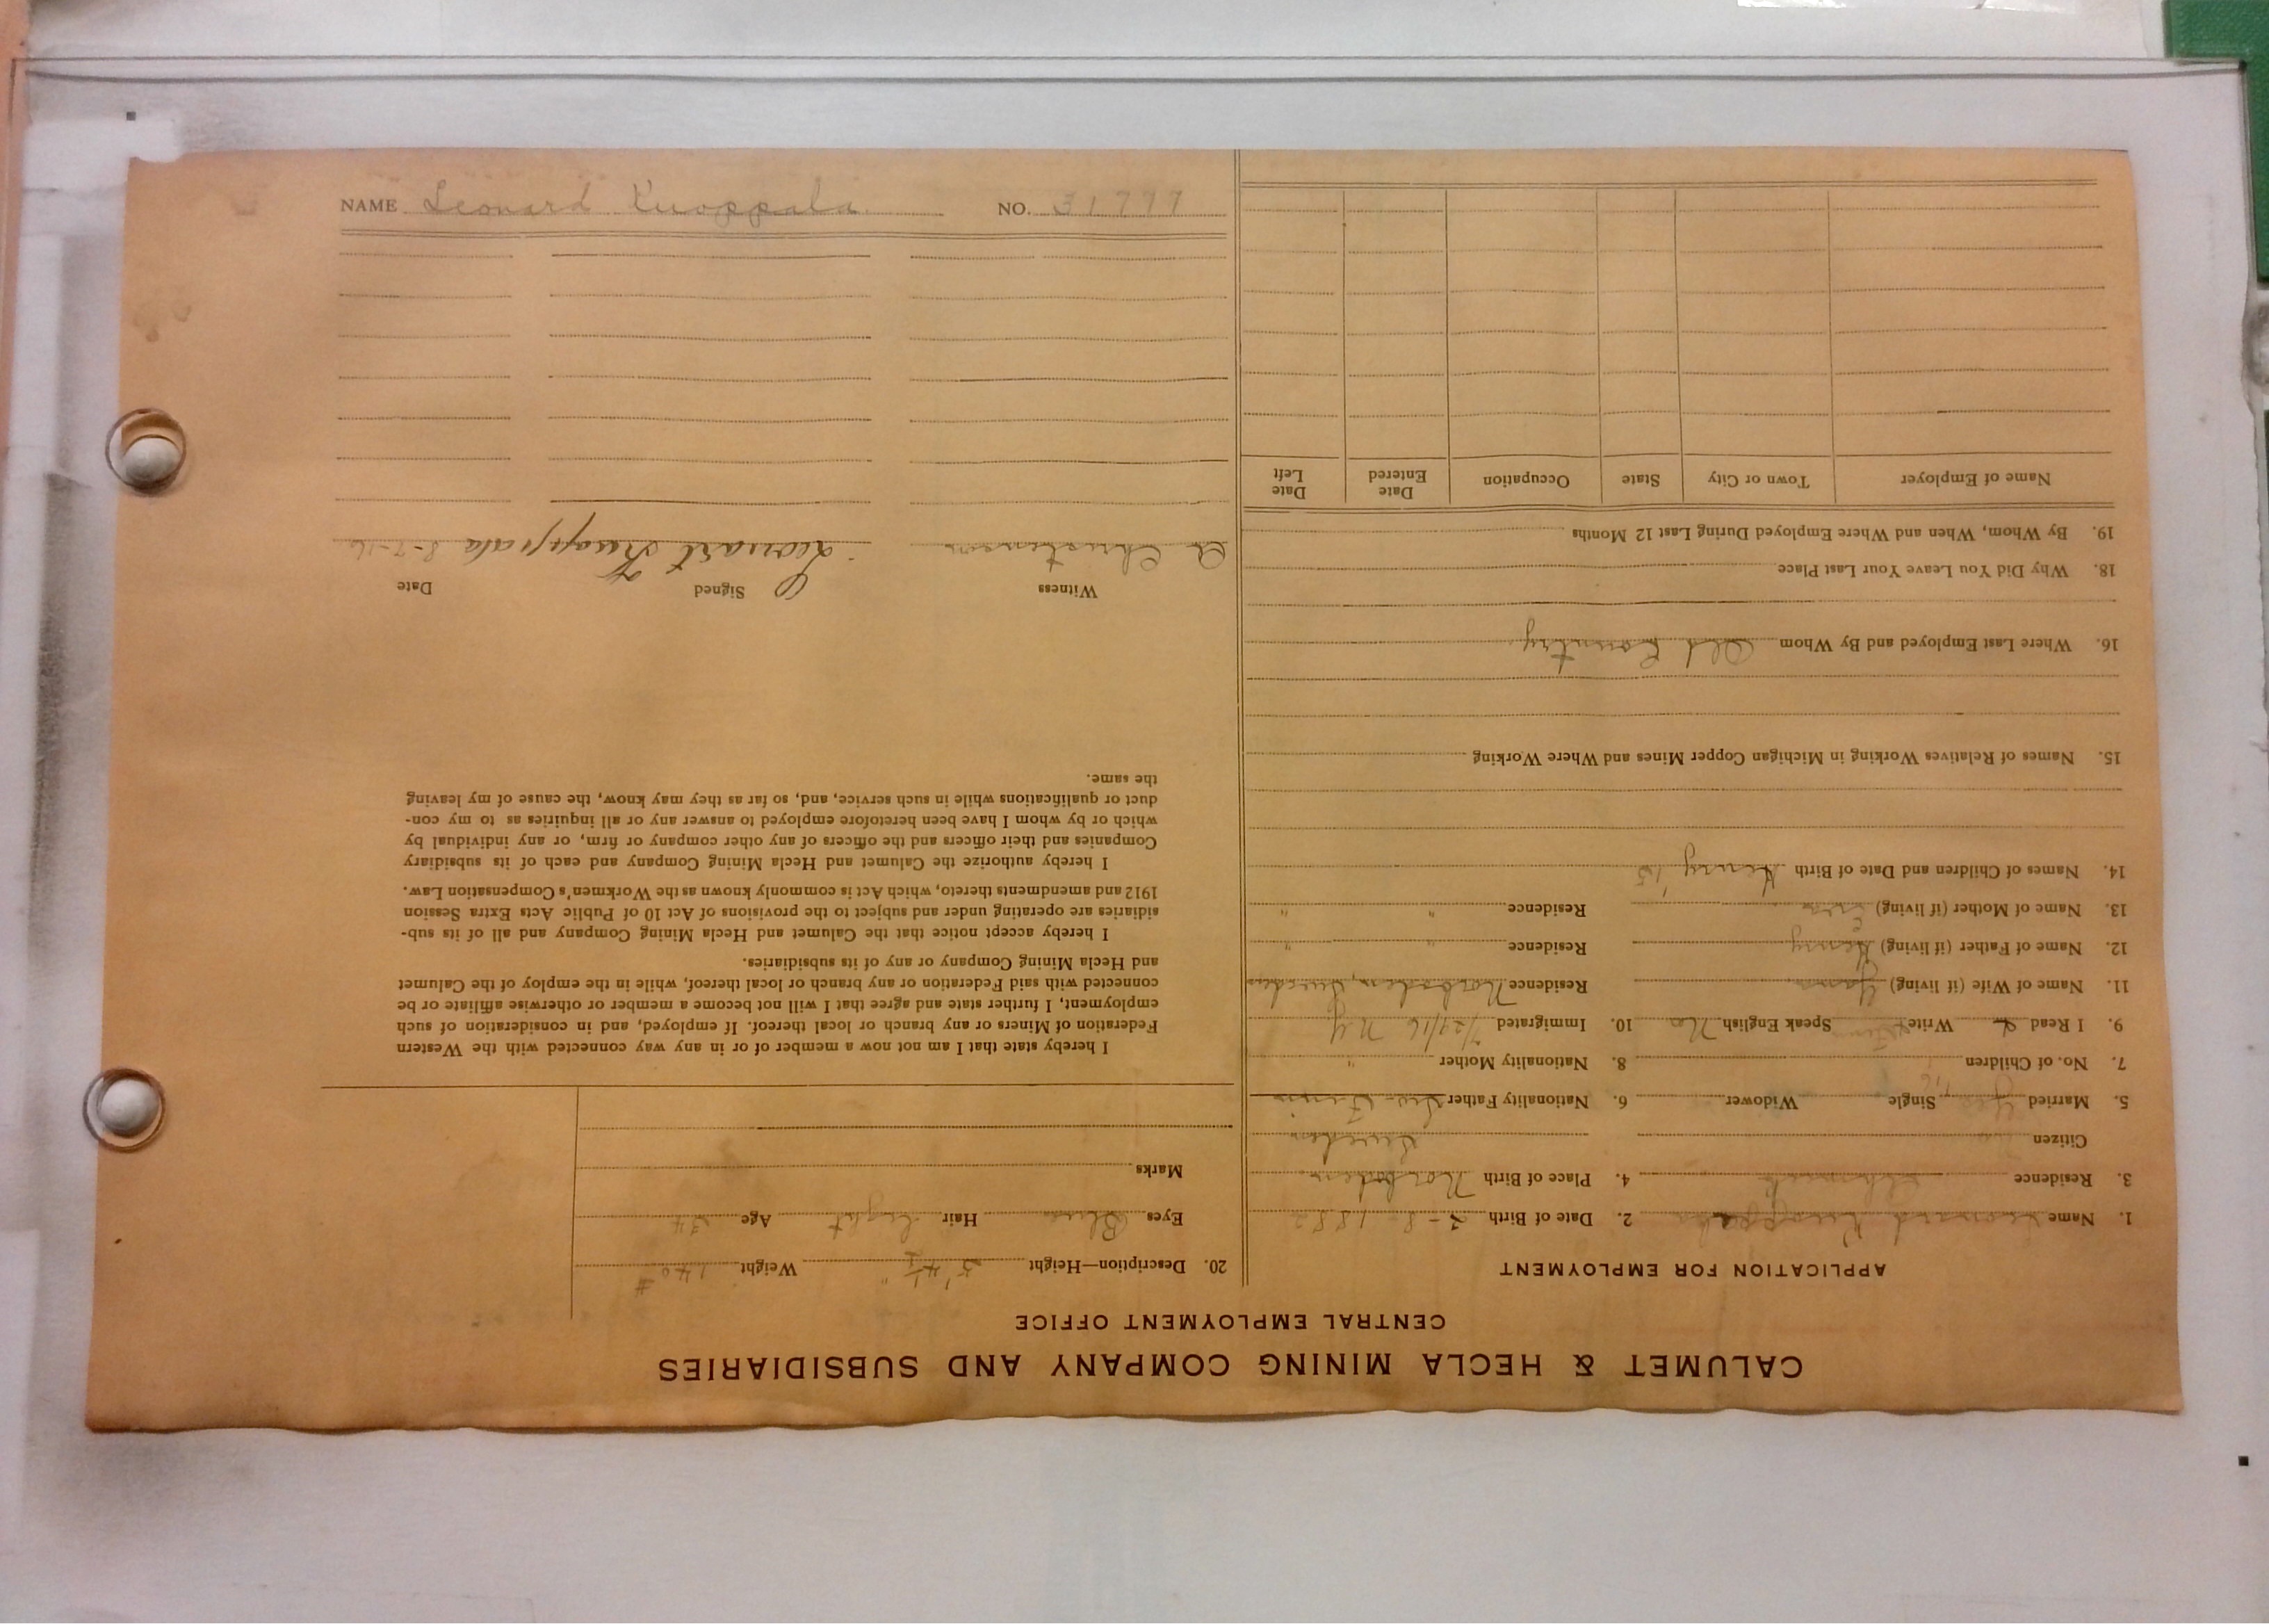 CALUMET & HECLA MINING COMPANY AND SUBSIDIARIES
CENTRAL EMPLOYMENT OFFICE
APPLICATION FOR EMPLOYMENT
1. Name Leonard Kuoppala 2. Date of Birth 2-8-1882
3. Residence 4. Place of Birth
Citizen Sweden
5. Married Yes Single Widower 6. Nationality Father
7. No. of Children 8. Nationality Mother "
9. I Read Write Speak English No 10. Immigrated 7/27/16 N.Y.
11. Name of Wife (if living) Residence
12. Name of Father (if living) Henry Residence " "
13. Name of Mother (if living) Residence " "
14. Names of Children and Date of Birth Henry '15
15. Names of Relatives Working in Michigan Copper Mines and Where Working
16. Where Last Employed and By Whom Old Country
18. Why Did You Leave Your Last Place
19. By Whom, When and Where Employed During Last 12 Months
Name of Employer Town or City State Occupation Date Entered Date Left
20. Description—Height 5' 4 1/2" Weight 140 #
Eyes Blue Hair Light Age 34
Marks
I hereby state that I am not now a member of or in any way connected with the Western
Federation of Miners or any branch or local thereof. If employed, and in consideration of such
employment, I further state and agree that I will not become a member or otherwise affiliate or be
connected with said Federation or any branch or local thereof, while in the employ of the Calumet
and Hecla Mining Company or any of its subsidiaries.
I hereby accept notice that the Calumet and Hecla Mining Company and all of its sub-
sidiaries are operating under and subject to the provisions of Act 10 of Public Acts Extra Session
1912 and amendments thereto, which Act is commonly known as the Workmen's Compensation Law.
I hereby authorize the Calumet and Hecla Mining Company and each of its subsidiary
Companies and their officers and the officers of any other company or firm, or any individual by
which or by whom I have been heretofore employed to answer any or all inquiries as to my con-
duct or qualifications while in such service, and, so far as they may know, the cause of my leaving
the same.
Witness Signed Date
Leonart Kuoppala 8-7-16
NAME Leonard Kuoppala. NO. 31777